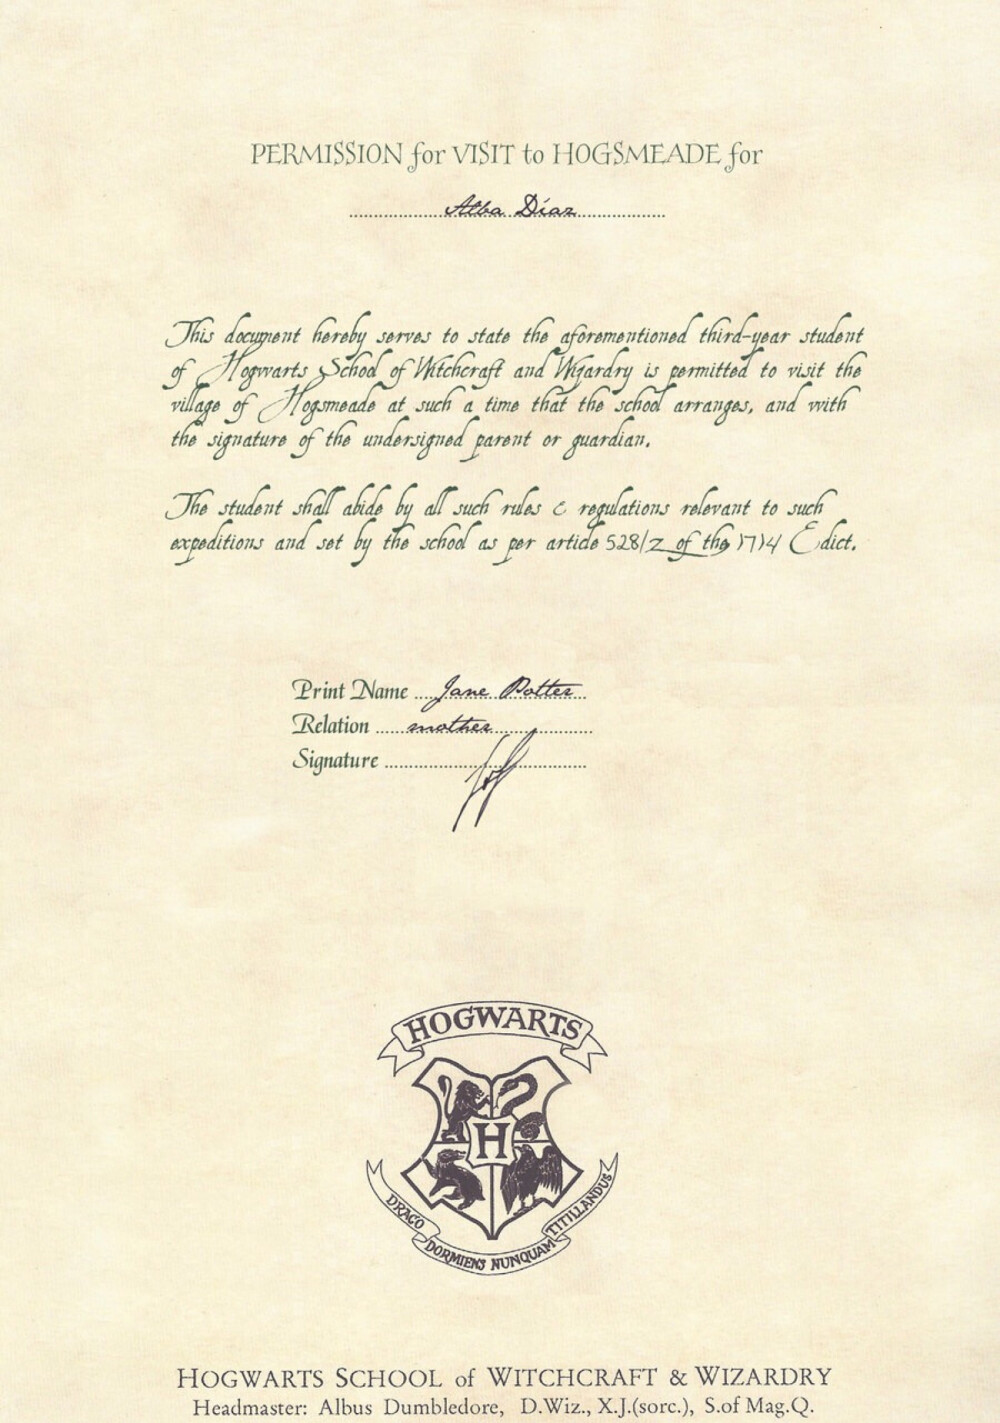 PERMISSION for VISIT to HOGSMEADE for
Alba Díaz
This document hereby serves to state the aforementioned third-year student
of Hogwarts School of Witchcraft and Wizardry is permitted to visit the
village of Hogsmeade at such a time that the school arranges, and with
the signature of the undersigned parent or guardian.
The student shall abide by all such rules & regulations relevant to such
expeditions and set by the school as per article 528/Z of the 1714 Edict.
Print Name Jane Potter
Relation mother
Signature
HOGWARTS
H
DRACO DORMIENS NUNQUAM TITILLANDUS
HOGWARTS SCHOOL of WITCHCRAFT & WIZARDRY
Headmaster: Albus Dumbledore, D.Wiz., X.J.(sorc.), S.of Mag.Q.